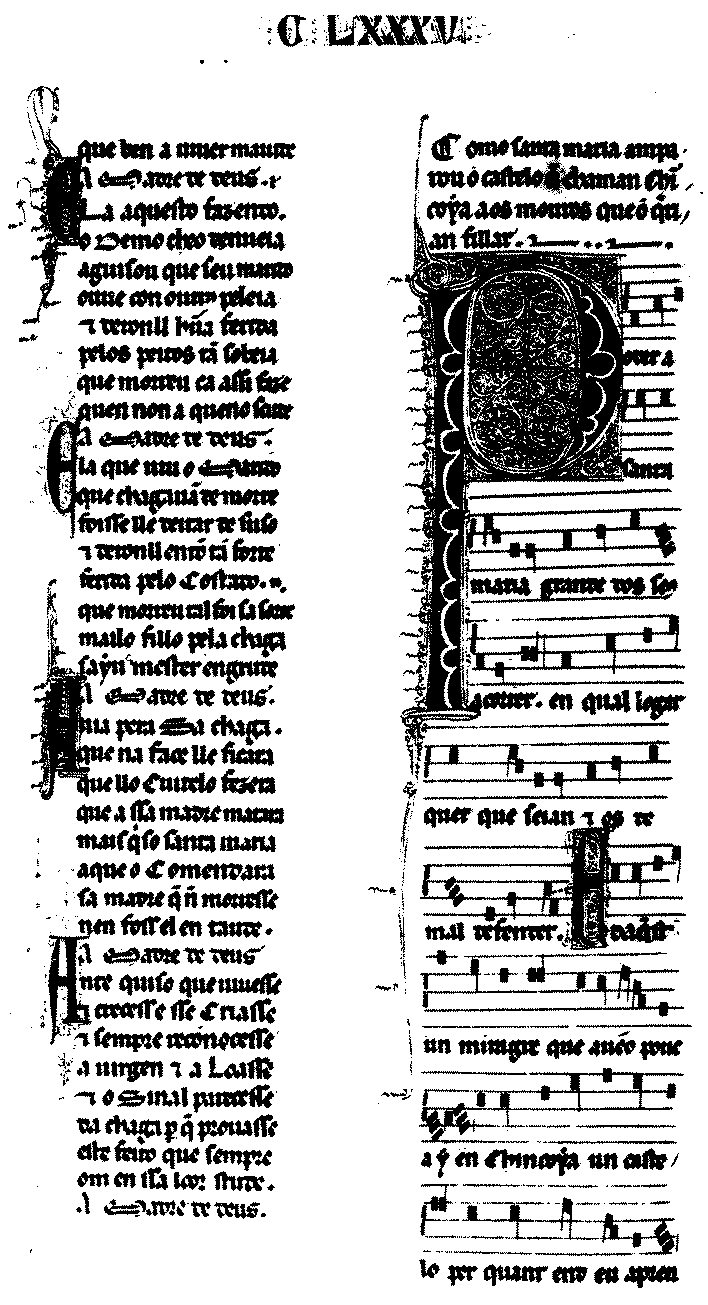 C LXXXV
que ben a uiuer mantẽ
A Madre de deus.
La aquesto fazendo.
o Demo cheo denueia
aguisou que seu marido
ouue con outr peleia
⁊ deronll hũa ferida
pelos peitos tã sobeia
que morreu ca assi faze
quen non a queno
A Madre de deus.
la que uiu o
que chagada de morte
foisse lle deitar de suso
⁊ deronll entõ tã forte
ferida pelo Costado.
que morreu tal foi sa sorte
mailo fillo pela chaga
sayu mester en
A Madre de deus.
hũa pera Sa chaga.
que na face lle ficara
que llo Cuitelo fezera
que a ssa madre matara
mais q̃so santa maria
a que o Comendara
sa madre q̃ ñ morresse
nen foss el en
A Madre de deus
Ante quiso que uiuesse
⁊ crecesse sse Criasse
⁊ sempre reconocesse
a uirgen ⁊ a Loasse
⁊ o Sinal parecesse
da chaga p q̃ prouasse
este feito que sempre
om en ssa loor
A Madre de deus.
Como santa maria ampa
rou o castelo q̃ chaman Chĩ
coya aos mouros que o q̃ri
an fillar.
Poder a
santa
maria grande dos se
acorrer. en qual logar
quer que seian ⁊ os de
mal defender. E daq̃st
un miragre que auẽo
a y en Chincoya un caste
lo per quant end eu apren